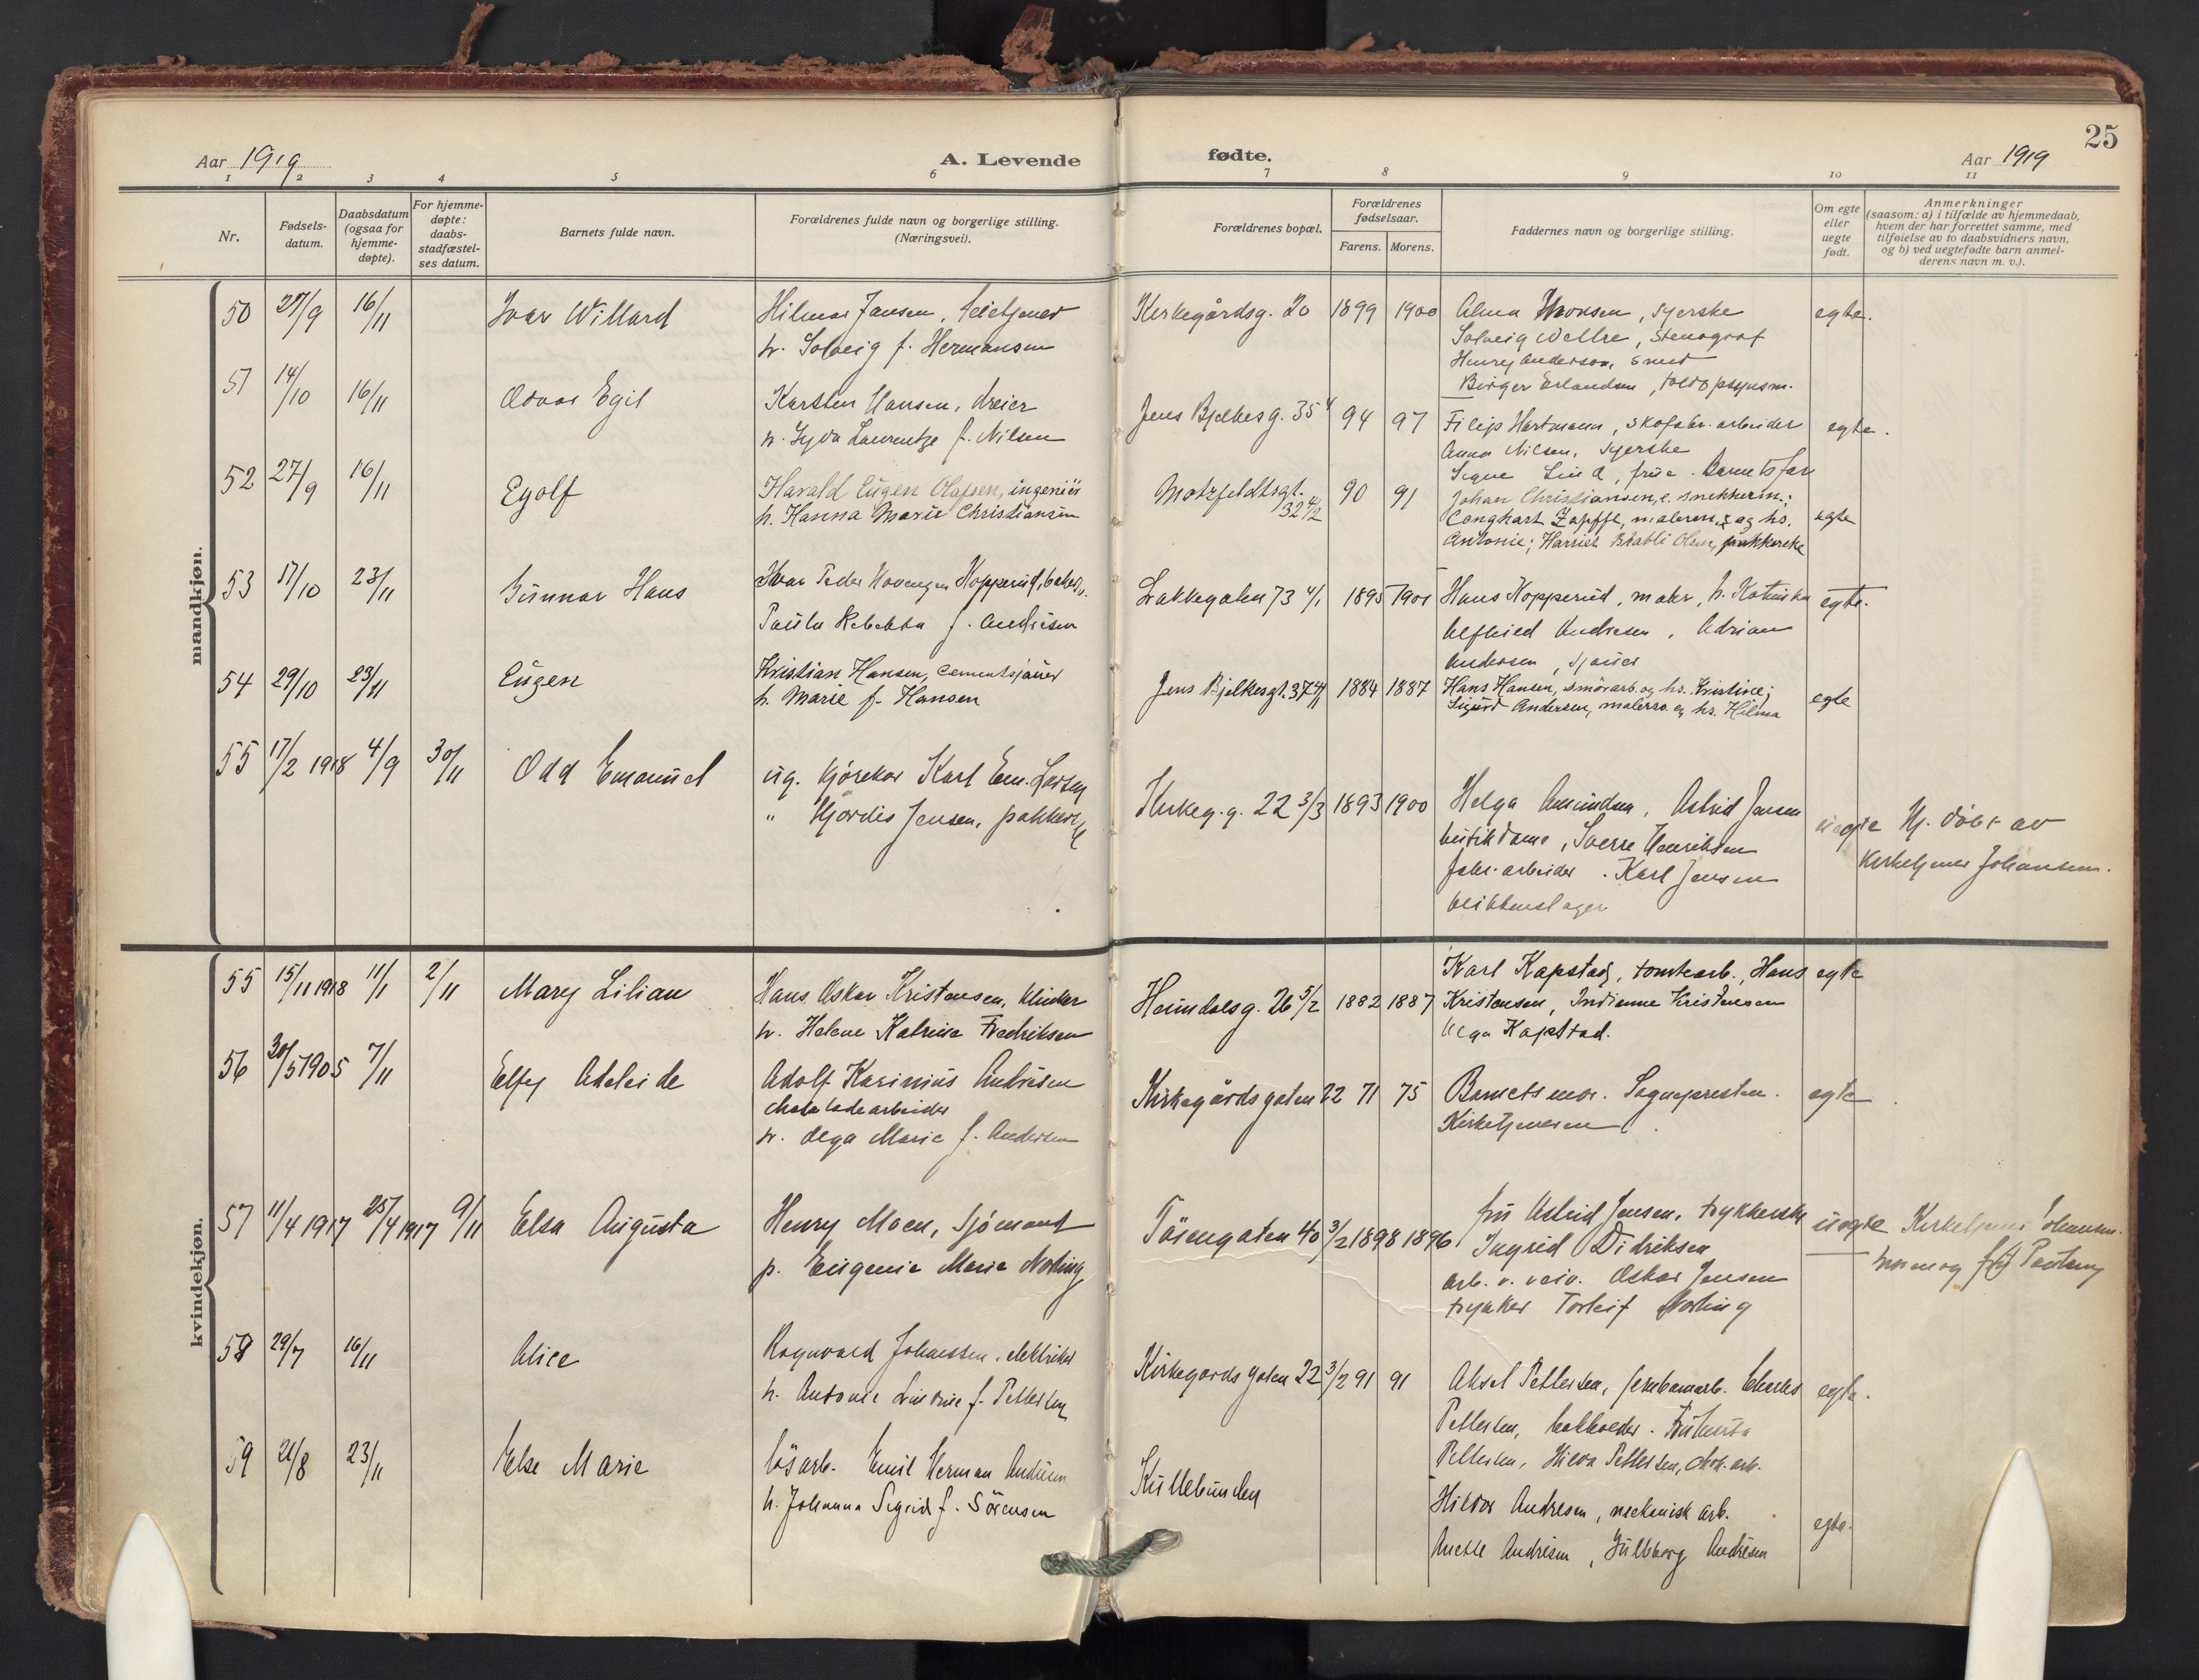 25
Aar 1919
A. Levende
fødte.
Aar 1919
1 2 3 4 5 6 7 8 9 10 11
Nr.
Fødsels-
datum.
Daabsdatum
(ogsaa for
hjemme-
døpte).
For hjemme-
døpte:
daabs-
stadfæstel-
ses datum.
Barnets fulde navn.
Forældrenes fulde navn og borgerlige stilling.
(Næringsvei).
Forældrenes bopæl.
Forældrenes
fødselsaar.
Farens. Morens.
Faddernes navn og borgerlige stilling.
Om egte
eller
uegte
født.
Anmerkninger
(saasom: a) i tilfælde av hjemmedaab,
hvem der har forrettet samme, med
tilføielse av to daabsvidners navn,
og b) ved uegtefødte barn anmel-
derens navn m. v.).
mandkjøn.
50 27/9 16/11
Ivar Willard
Hilmar Jansen,
h. Solveig f. Hermansen
Kirkegårdsg. 20
1899 1900
Alma Thronsen, syerske
Solveig Wellre, Stenograf
Henry Anderson, smed
Birger Erlandsen, toldopsynsm.
egte.
51 14/10 16/11
Odvar Egil
Karsten Hansen, dreier
h. Lyda Laurentze f. Nilsen
Jens Bjelkes g. 35
94 97
Filip Hartmann, skofabr. arbeider
Anna Nilsen, syerske
Signe Lind, frue. Barnets far
egte.
52 27/9 16/11
Egolf
Harald Eugen Olafsen, ingeniör
h. Hanna Marie Christiansen
Motzfeldtsgt.
32 4/2
90 91
Johan Christiansen, e. snekkerm.;
Zapffe, malerm. og hs.
Antonie; Harriet Olsen, pakkerske
egte
53 17/10 23/11
Gunnar Hans
Ivar Peder Hovengen Kopperud, baker
Paula Rebekka f. Andresen
Lakkegaten 73 4/1
1895 1901
Hans Kopperud, maler, h. Katinka
Alfhild Andresen, Adrian
Andersen, sjauer
egte.
54 29/10 23/11
Eugen
Kristian Hansen, cementsjauer
h. Marie f. Hansen
Jens Bjelkesgt. 37 4/1
1884 1887
Hans Hansen, smörarb. og hs. Kristine;
Sigurd Andersen, malersv. og hs. Hilma
egte
55 17/2 1918 4/9 30/11
Odd Emanuel
ug. kjørekar Karl Em. Larsen
" Hjördis Jensen, pakkerske
Kirkeg. g. 22 3/3
1893 1900
Helga Amundsen, Astrid Jansen
butikdame, Sverre Henriksen
fabr. arbeider. Karl Jensen
blikkenslager
uegte
Hj. döbt av
Kirketjener Johansen.
kvindekjøn.
55 15/11 1918 11/1 2/11
Mary Lilian
Hans Oskar Kristensen,
h. Helene Katrine Fredriksen
Heimdalsg. 26 5/2
1882 1887
Karl Kapstad, tomtearb., Hans
Kristensen, Indianne Kristensen
Olga Kapstad.
egte
56 30/5 1905 7/11
Elfy Adeleide
Adolf Karinius Andresen
chokoladearbeider
h. Olga Marie f. Andersen
Kirkegårdsgaten 22
71 75
Barnets mor. Sognepresten.
Kirketjeneren
egte
57 11/4 1917 25/4 1917 9/11
Elsa Augusta
Henry Moen, Sjömand
p. Eugenie Marie Norling
Töiengaten 40 3/2
1898 1896
fru Astrid Jensen, trykkerske
Ingrid Didriksen
arb. v. veiv. Oskar Jensen
trykker Torleif Norling
uegte
Kirketjener Johansen.
58 29/7 16/11
Alice
Ragnvald Johansen, elektriker
h. Antonie Lovise f. Pettersen
Kirkegårdsgaten 22 3/2
91 91
Aksel Pettersen, jernbanearb. Charles
Pettersen,
Pettersen, Hilda Pettersen, chok. arb.
egte.
59 21/8 23/11
Else Marie
lösarb. Emil Herman Andresen
h. Johanna Sigrid f. Sörensen
Kullebunden
Hildor Andresen, mekanisk arb.
Anette Andresen, Gulborg Andresen
egte.